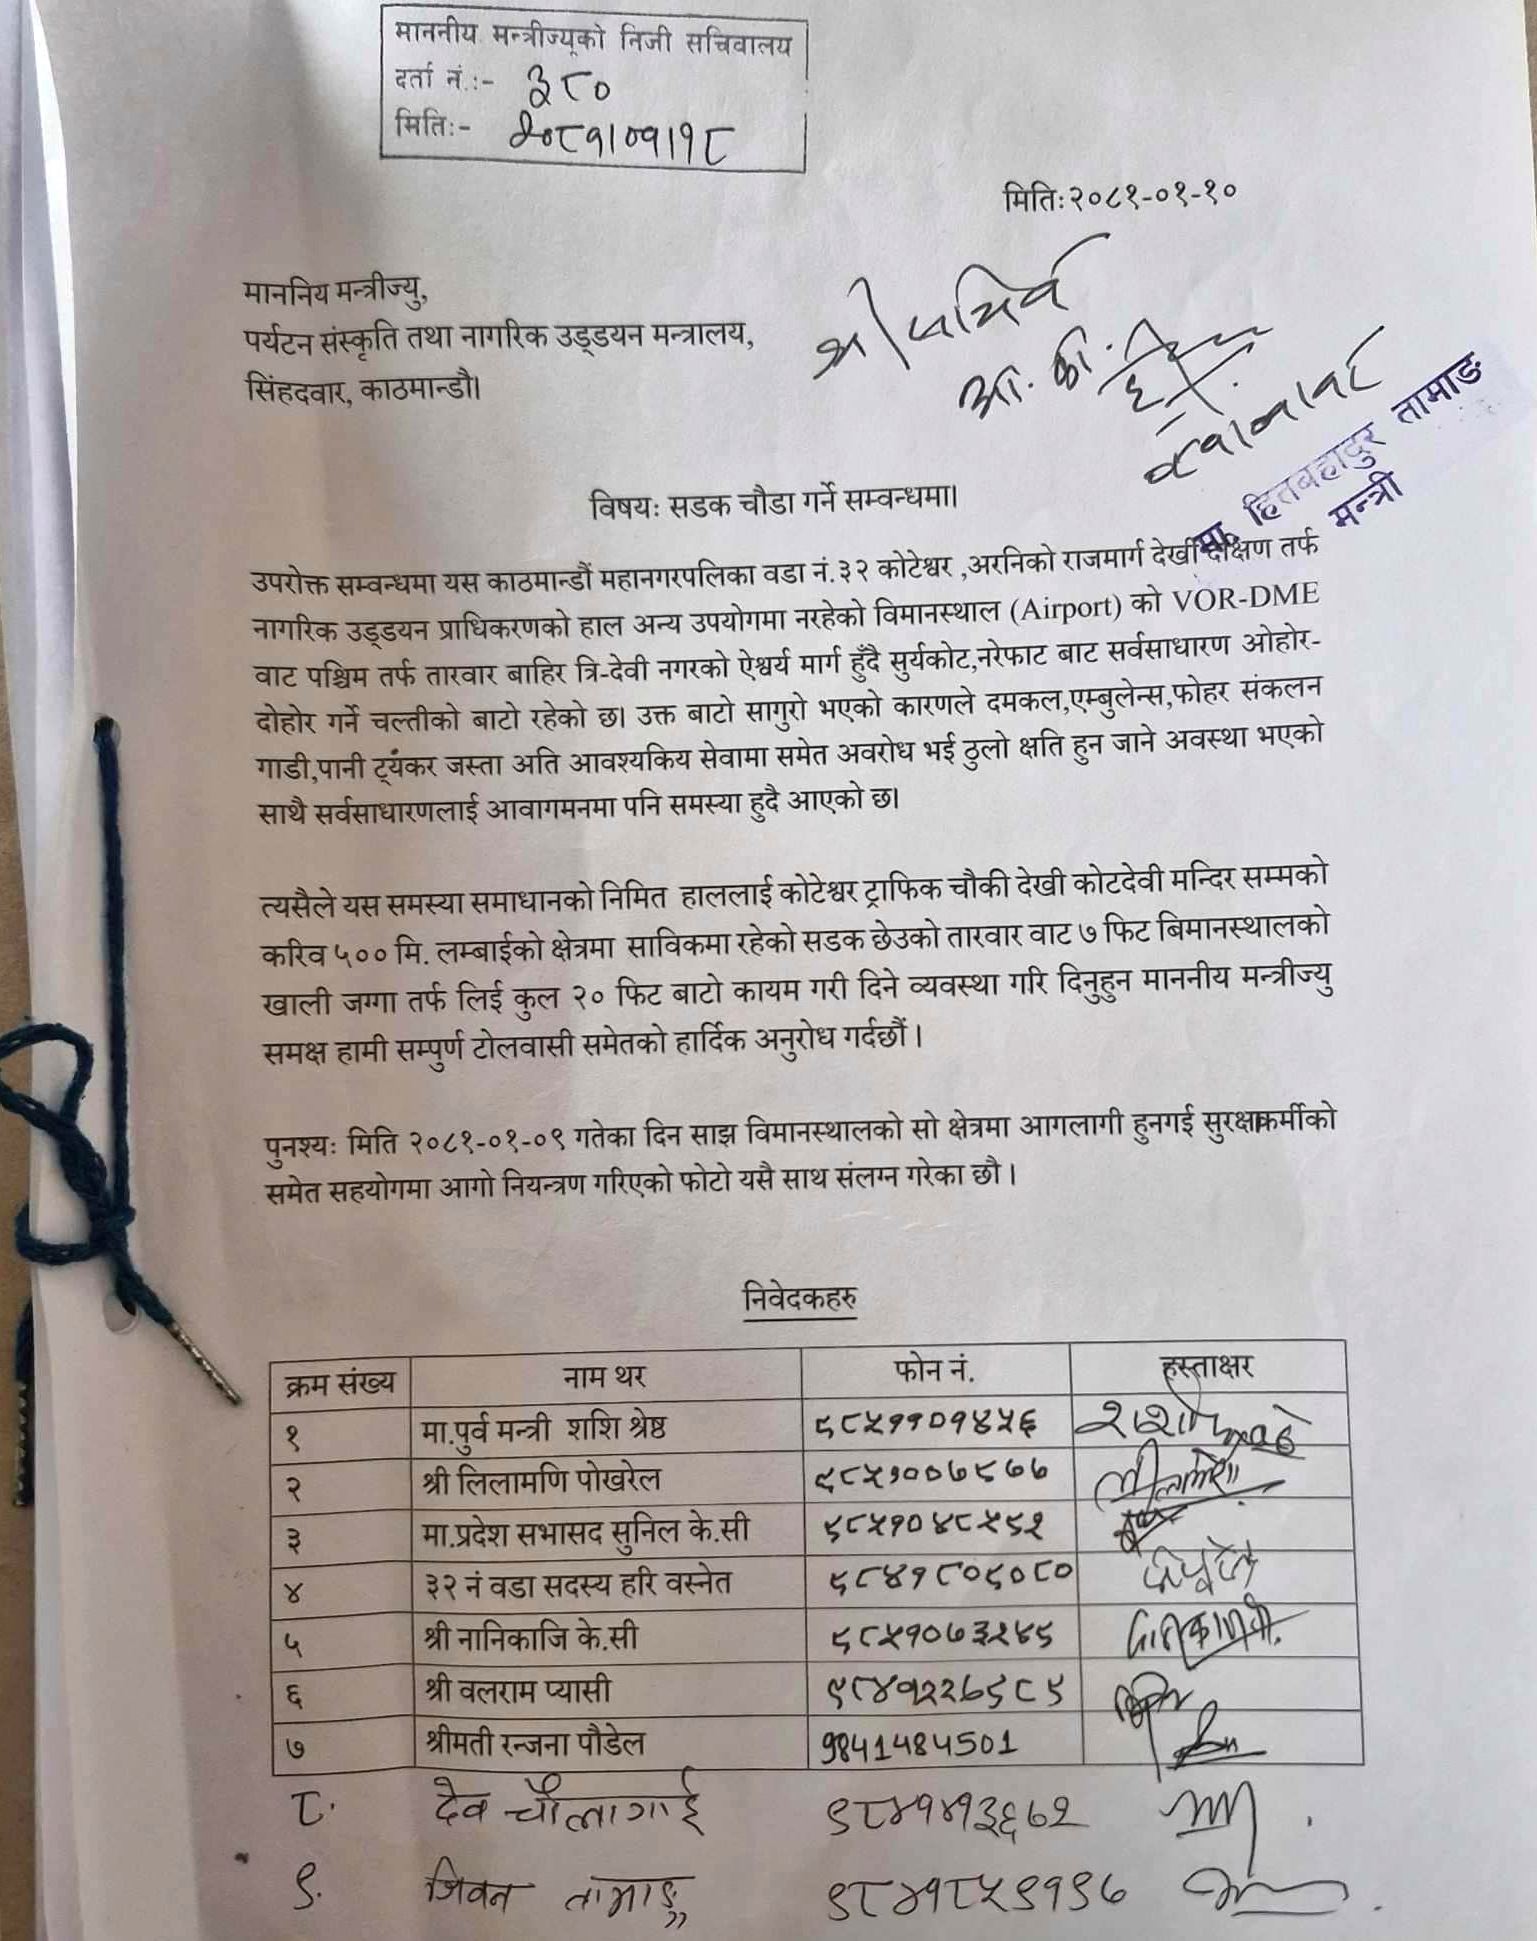 माननीय मन्त्रीज्यूको निजी सचिवालय
दर्ता नं.:- ३८०
मिति:- २०८१।०१।१८
मितिः२०८१-०१-१०
माननिय मन्त्रीज्यु,
पर्यटन संस्कृति तथा नागरिक उड्डयन मन्त्रालय,
सिंहदवार, काठमान्डौ।
श्री
मा. हितबहादुर तामाङ
मन्त्री
विषयः सडक चौडा गर्ने सम्वन्धमा।
उपरोक्त सम्वन्धमा यस काठमान्डौं महानगरपलिका वडा नं.३२ कोटेश्वर ,अरनिको राजमार्ग देखी दक्षिण तर्फ
नागरिक उड्डयन प्राधिकरणको हाल अन्य उपयोगमा नरहेको विमानस्थाल (Airport) को VOR-DME
वाट पश्चिम तर्फ तारवार बाहिर त्रि-देवी नगरको ऐश्वर्य मार्ग हुँदै सुर्यकोट,नरेफाट बाट सर्वसाधारण ओहोर-
दोहोर गर्ने चल्तीको बाटो रहेको छ। उक्त बाटो सागुरो भएको कारणले दमकल,एम्बुलेन्स,फोहर संकलन
गाडी,पानी ट्यंकर जस्ता अति आवश्यकिय सेवामा समेत अवरोध भई ठुलो क्षति हुन जाने अवस्था भएको
साथै सर्वसाधारणलाई आवागमनमा पनि समस्या हुदै आएको छ।
त्यसैले यस समस्या समाधानको निमित हाललाई कोटेश्वर ट्राफिक चौकी देखी कोटदेवी मन्दिर सम्मको
करिव ५०० मि. लम्बाईको क्षेत्रमा साविकमा रहेको सडक छेउको तारवार वाट ७ फिट बिमानस्थालको
खाली जग्गा तर्फ लिई कुल २० फिट बाटो कायम गरी दिने व्यवस्था गरि दिनुहुन माननीय मन्त्रीज्यु
समक्ष हामी सम्पुर्ण टोलवासी समेतको हार्दिक अनुरोध गर्दछौं ।
पुनश्यः मिति २०८१-०१-०९ गतेका दिन साझ विमानस्थालको सो क्षेत्रमा आगलागी हुनगई सुरक्षाकर्मीको
समेत सहयोगमा आगो नियन्त्रण गरिएको फोटो यसै साथ संलग्न गरेका छौ ।
निवेदकहरु
क्रम संख्य नाम थर फोन नं. हस्ताक्षर
१ मा.पुर्व मन्त्री शशि श्रेष्ठ ९८५११०१४५६
२ श्री लिलामणि पोखरेल ९८५१००७९७७
३ मा.प्रदेश सभासद सुनिल के.सी ९८५१०४८५९२
४ ३२ नं वडा सदस्य हरि वस्नेत ९८४१८०९०८०
५ श्री नानिकाजि के.सी ९८५१०७३२४९
६ श्री वलराम प्यासी ९८४१२२७९८९
७ श्रीमती रन्जना पौडेल 9841484501
८. देव चौलागाई ९८४१४१३६७२
९. जिवन तामाङ ९८४१८५९१९७